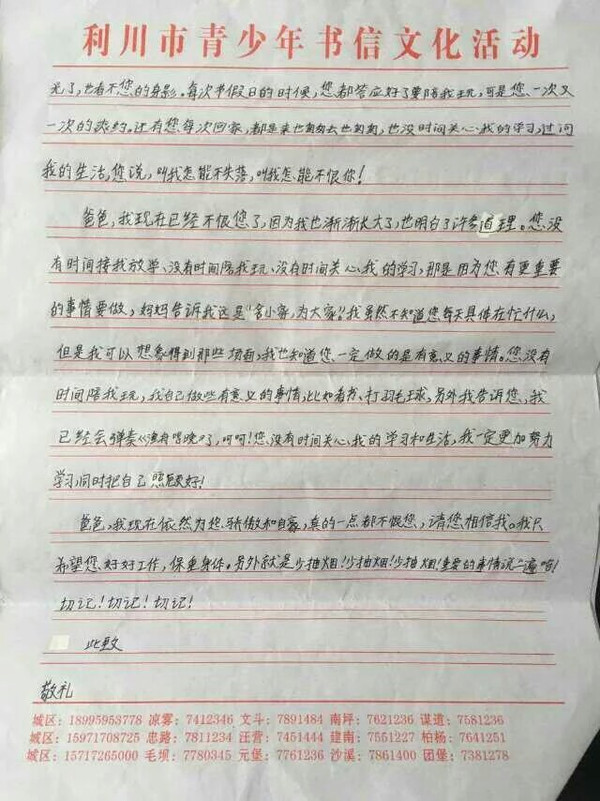 利川市青少年书信文化活动
完了,也看不您的身影。每次半假日的时候,您都答应好了要陪我玩,可是您一次又
一次的爽约。还有您每次回家,都是来也匆匆去也匆匆,也没时间关心我的学习,过问
我的生活。您说,叫我怎能不失落,叫我怎能不恨你!
爸爸,我现在已经不恨您了,因为我也渐渐长大了,也明白了许多道理。您没
有时间接我放学、没有时间陪我玩、没有时间关心我的学习,那是因为您有更重要
的事情要做,妈妈告诉我这是“舍小家,为大家”。我虽然不知道您每天具体在忙什么,
但是我可以想象得到那些场面,我也知道您一定做的是有意义的事情。您没有
时间陪我玩,我自己做些有意义的事情,比如看书、打羽毛球,另外我告诉您,我
已经会弹奏《渔舟唱晚》了,呵呵!您没有时间关心我的学习和生活,我一定更加努力
学习,同时把自己照顾好!
爸爸,我现在依然为您骄傲和自豪,真的一点都不恨您,请您相信我。我只
希望您好好工作,保重身体。另外就是少抽烟!少抽烟!少抽烟!重要的事情说三遍哈!
切记!切记!切记!
此致
敬礼
城区:18995953778 凉雾:7412346 文斗:7891484 南坪:7621236 谋道:7581236
城区:15971708725 忠路:7811234 汪营:7451444 建南:7551227 柏杨:7641251
城区:15717265000 毛坝:7780345 元堡:7761236 沙溪:7861400 团堡:7381278